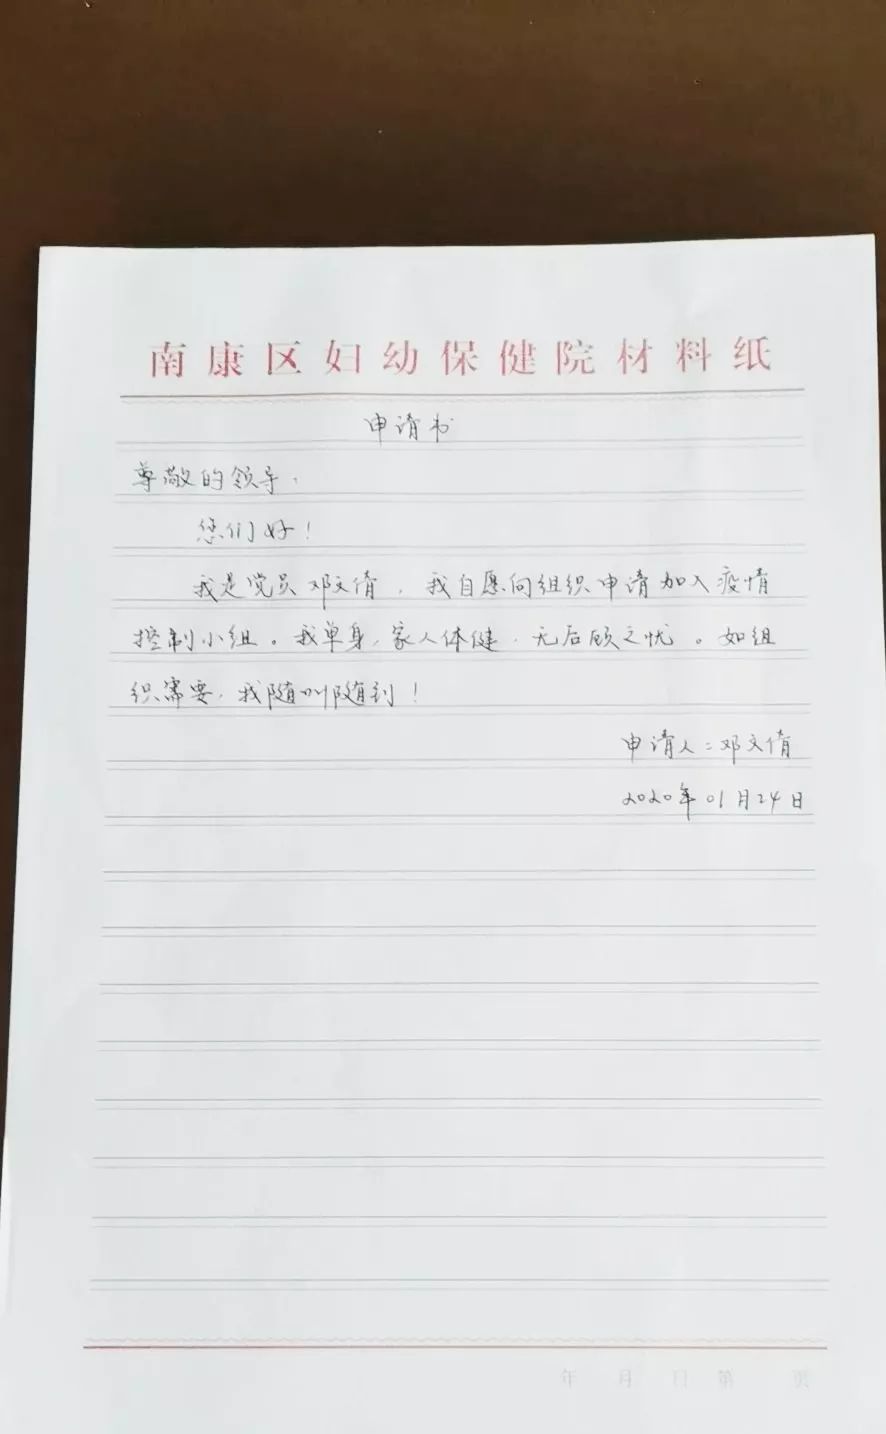 南康区妇幼保健院材料纸
申请书
尊敬的领导,
您们好!
我是党员邓文倩,我自愿向组织申请加入疫情
控制小组。我单身,家人体健,无后顾之忧。如组
织需要,我随叫随到!
申请人:邓文倩
2020年01月24日
年 月 日 第 页